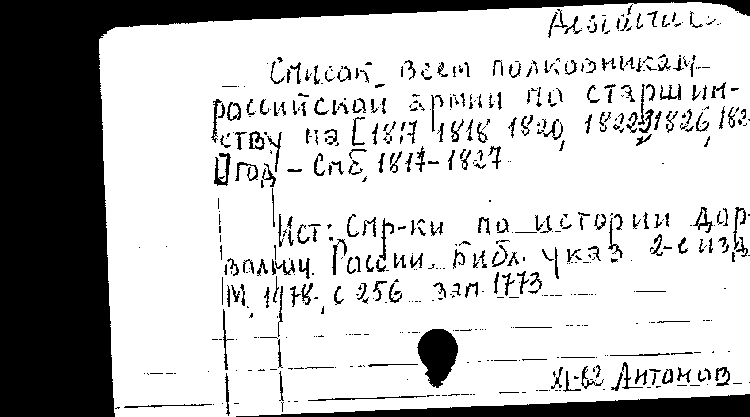 Список всем полковникам
российской армии по старшин-
ству на [1817 1818 1820, 1822, 1826, 182
]год – Спб, 1817-1827
Ист: Спр-ки по истории дор-
валюц. России. Библ. указ 2-е изд
М, 1978, с 256 зап. 1773
XI-82 Антонов